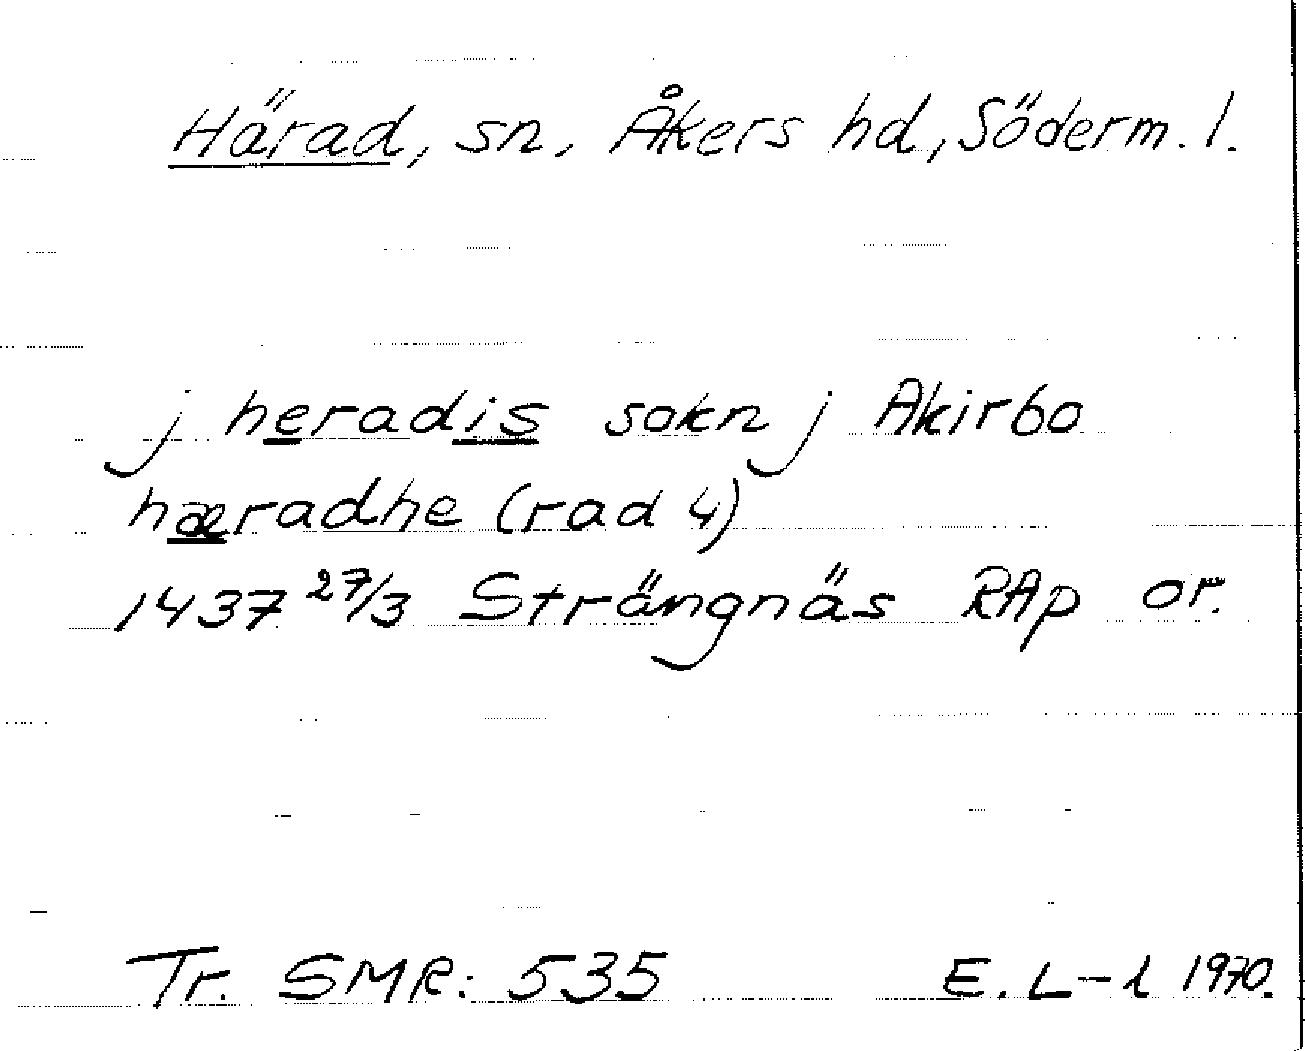 Härad, sn, Åkers hd, Söderm. l.
j heradis sokn j Akirbo
hæradhe (rad 4)
1437 27/3 Strängnäs RAp or.
Tr. SMR: 535 E. L-l 1970.